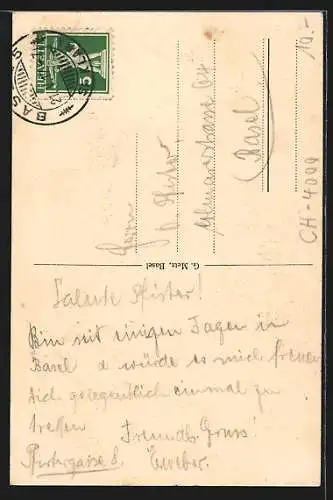 Salute Pfister!
Bin seit einigen Tagen in
Basel & würde es mich freuen
Dich gelegentlich einmal zu
treffen Freundl. Gruss!
8. EWeber.
Herrn
Pfister
Basel
G. Metz, Basel
HELVETIA
5
BASEL
10.-
CH-4000